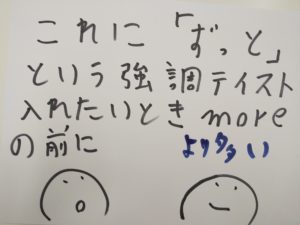 これに「ずっと」
という強調テイスト
入れたいとき more
の前に
より多い